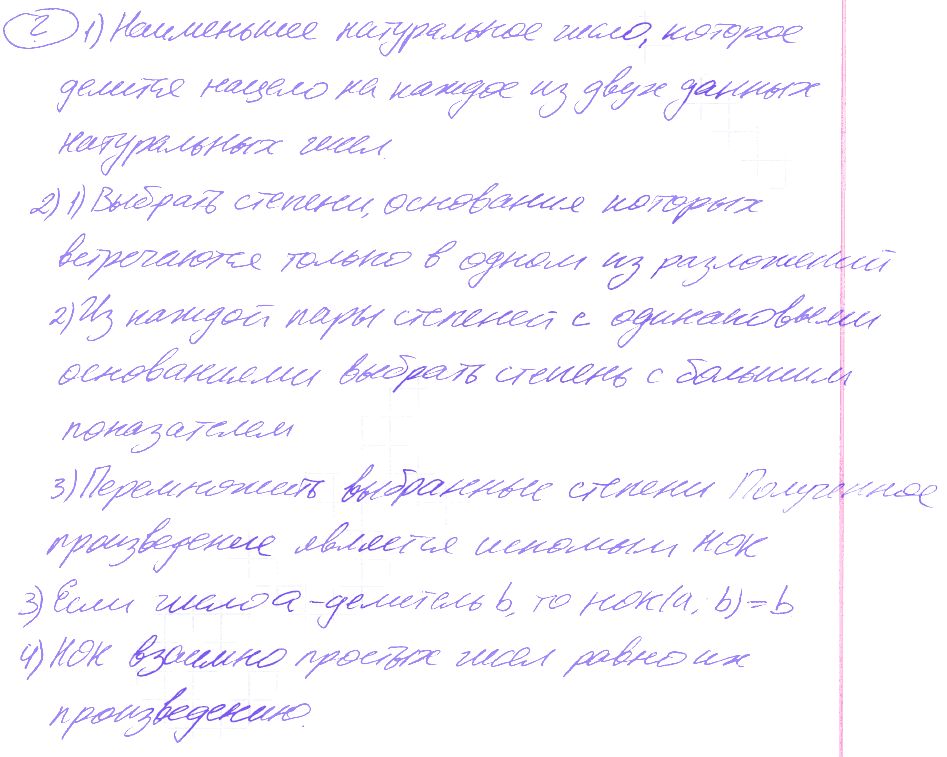 ? 1) Наименьшее натуральное число, которое
делится нацело на каждое из двух данных
натуральных чисел.
2) 1) Выбрать степени, основания которых
встречаются только в одном из разложений
2) Из каждой пары степеней с одинаковыми
основаниями выбрать степень с большим
показателем
3) Перемножить выбранные степени Полученное
произведение является искомым НОК
3) Если число a - делитель b, то НОК(a; b) = b
4) НОК взаимно простых чисел равно их
произведению.